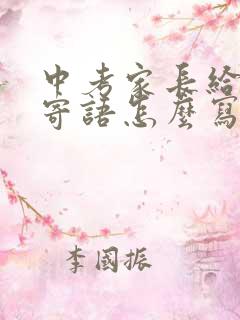 中考家長給
寄語怎麼寫
李國振